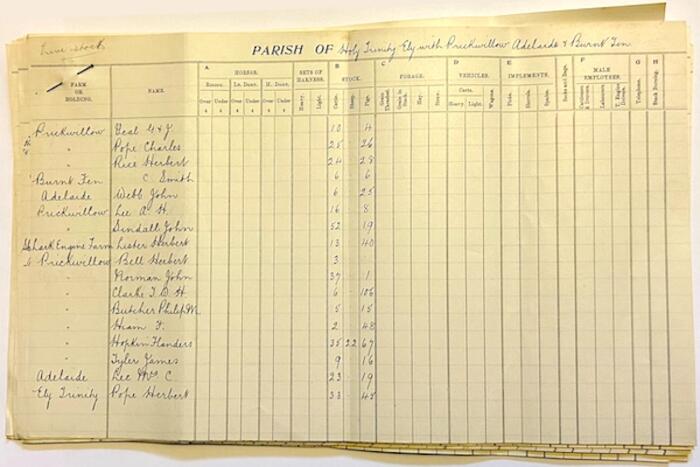 Live stock
PARISH OF Holy Trinity Ely with Prickwillow Adelaide & Burnt Fen
A B C D E F G H
FARM OR HOLDING. NAME. HORSES. SETS OF HARNESS. STOCK. FORAGE. VEHICLES. IMPLEMENTS. MALE EMPLOYEES.
Lt. Dght. H. Dght. Carts.
Over 4 Under 4 Over 4 Under 4 Over 4 Under 4 Heavy. Light. Cattle. Sheep. Pigs. Grain Threshed. Grain in Stack. Hay. Straw. Heavy. Light. Wagons. Picks. Shovels. Spades. Sacks and Bags. Labourers. Telephone. Stock Running.
Prickwillow Geal G & J. 10 4
" Pope Charles 25 26
" Rice Herbert 24 28
Burnt Fen C. Smith 6 6
Adelaide Webb John 6 25
Prickwillow Lee A. H. 16 8
" Sindall John 52 19
Shark Engine Farm Lister Herbert 13 40
Prickwillow Bell Herbert 3
" Norman John 37 1
" Clarke T. D. H 6 106
" Butcher Philip M. 5 15
" Hiam F. 2 48
" Hopkin Flanders 35 22 67
" Tyler James 9 16
Adelaide Lee C. 23 19
Ely Trinity Pope Herbert 33